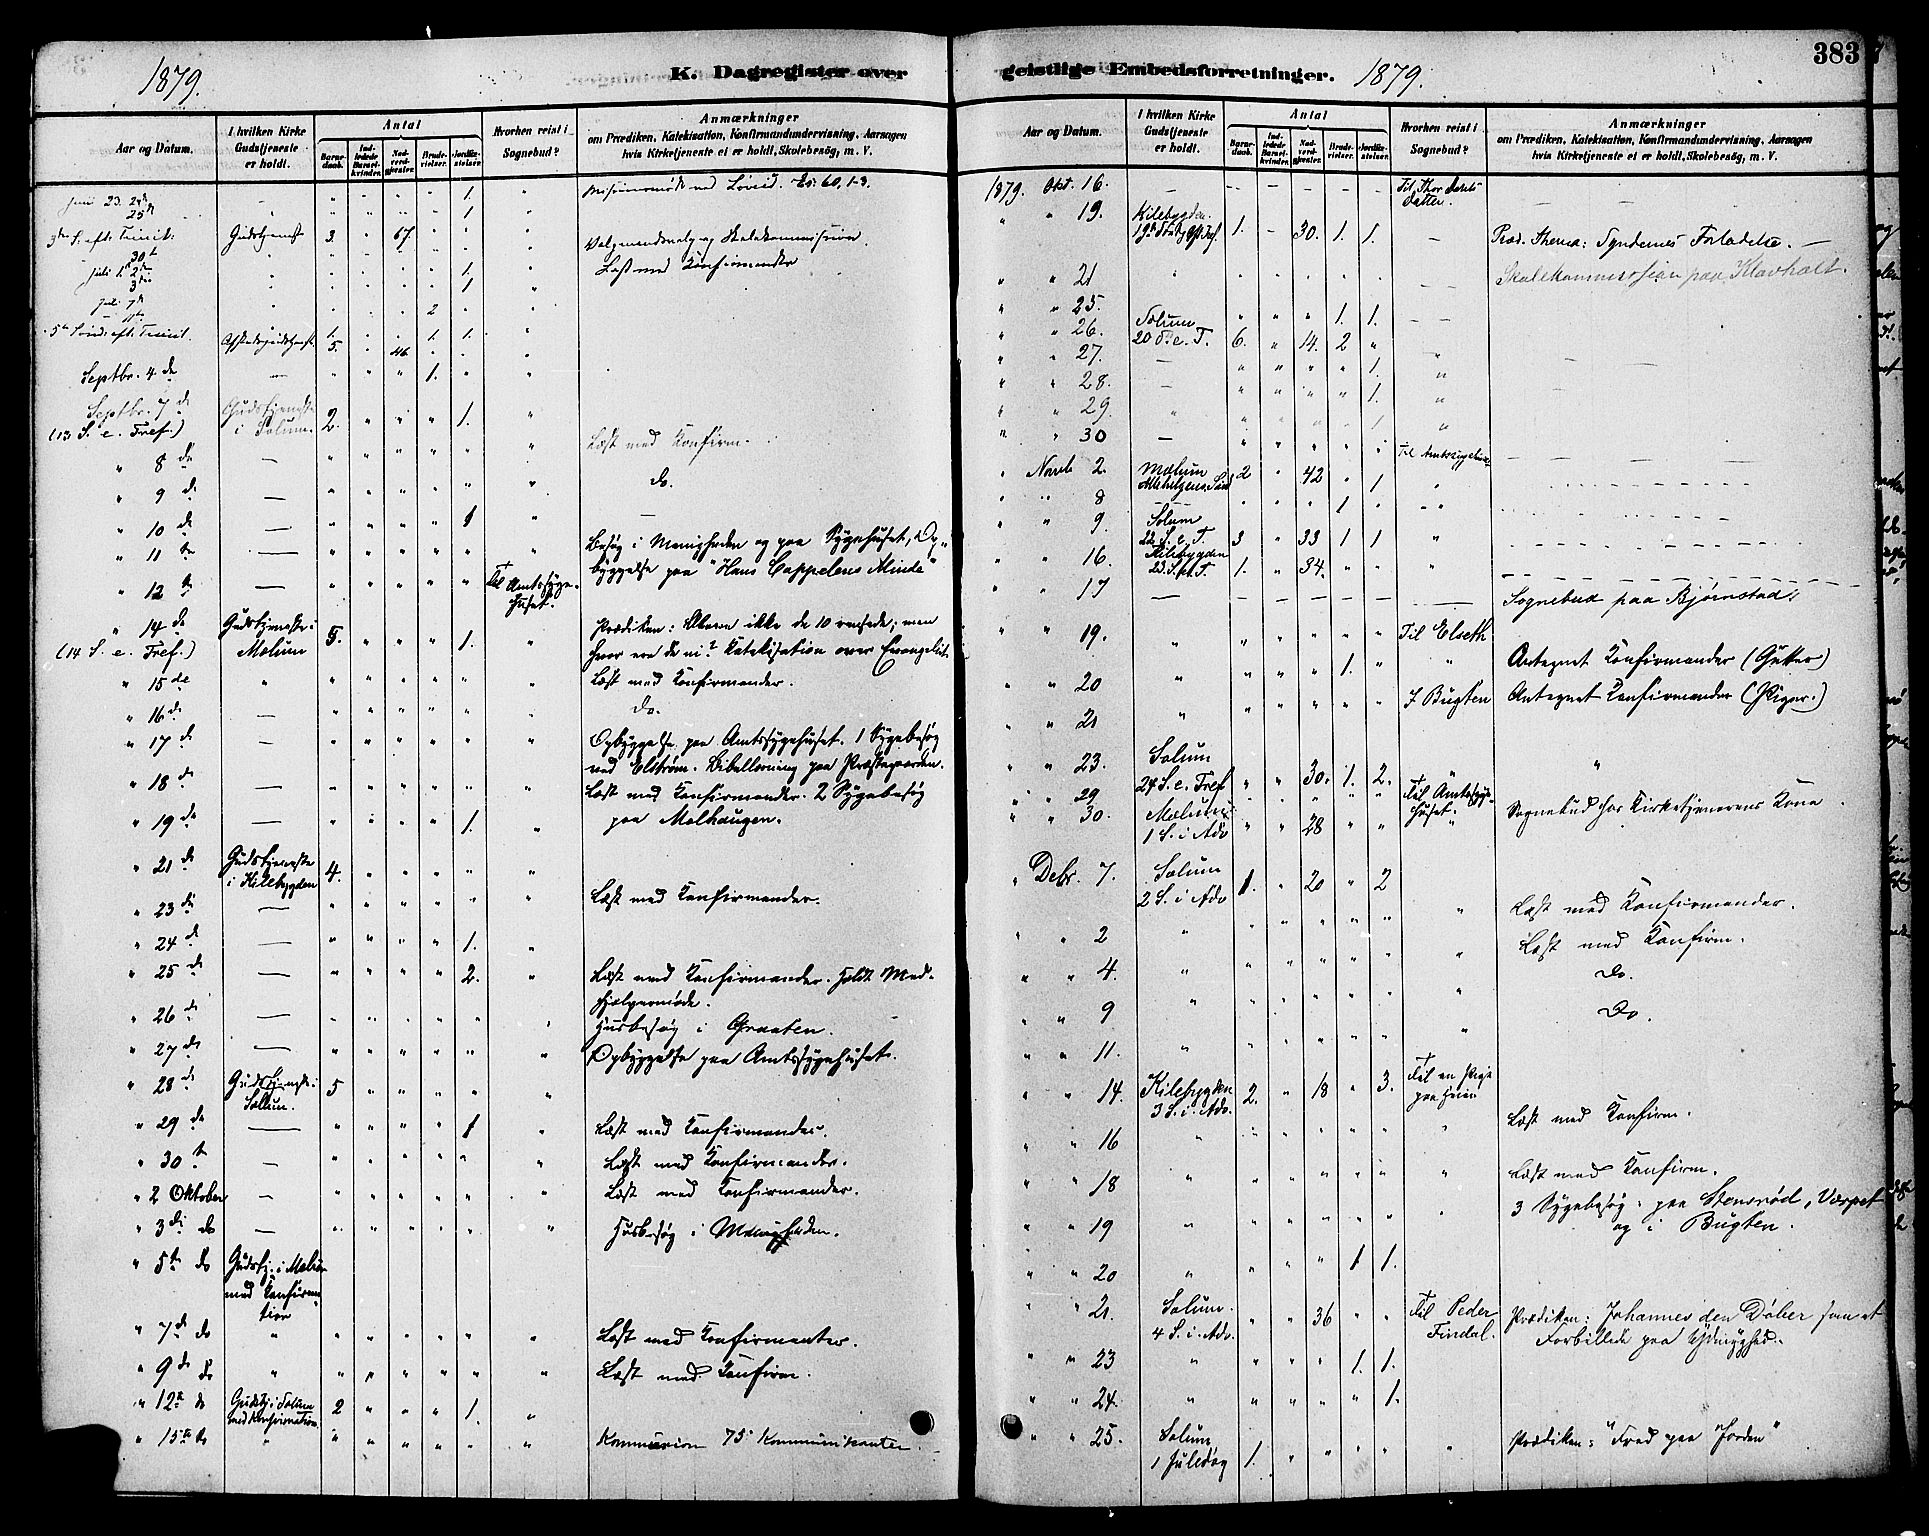 1879.
K. Dagregister over
Aar og Datum.
I hvilken Kirke Gudstjeneste er holdt.
Antal
Barnedaab.
Indledede Barselkvinder.
Nadverdgjester.
Brudevielser.
Jordfæstelser.
Hvorhen reist i Sognebud?
Anmærkninger
om Prædiken, Katekisation, Konfirmandundervisning, Aarsagen
hvis Kirketjeneste ei er holdt, Skolebesøg, m. V.
Juni 23. 24de " " " " 1. " Missionsmøde ved Løveid. Es: 60, 1-3.
25de " " " " 1. "
3die S. eft. Trinit: Gudstjeneste 3. " 67. " " " Valgmandsvalg og Skolekommission
30te
Juli 1. 2den " " " " 1. " Læst med Konfirmander
3die " " " " 1. "
Juli 7de " " " 2 " "
5te Sønd. eft. Trinit. 1. " " 1. 1.
Afskedsgudstjenst. 5. " 46 " " "
Septbr. 4de — " " " 1. " "
Septbr. 7de Gudstjeneste
(13 S. e. Tref.) i Solum. 2. " " " 1. "
" 8de — " " " " " " Læst med Konfirm.
" 9de — " " " " " " do.
" 10de — " " " " 1 " —
" 11te — " " " " " " Besøg i Menigheden og paa Sygehuset, Op-
byggelse paa "Hans Cappelens Minde"
" 12te — " " " " " Til Amtssyge-
huset.
" 14de Gudstjeneste i 5. " " " 1. " Prædiken: Bleve ikke de 10 rensede; men
(14 S. e. Tref.) Melum hvor ere de ni? Katekisation over Evangeliet.
" 15de " " " " " " " Læst med Konfirmander.
" 16de — " " " " " " do.
" 17de — " " " " " " Opbyggelse paa Amtssygehuset. 1 Sygebesøg
ved Elstrøm. Bibellæsning paa Præstegaarden.
" 18de — " " " " " " Læst med Konfirmander. 2 Sygebesøg
" 19de — " " " " 1. " paa Melhaugen.
" 21de Gudstjeneste
i Kilebygden 4. " " " " "
" 23de — " " " " " " Læst med Konfirmander.
" 24de — " " " " 1. "
" 25de — " " " " 2. " Læst med Konfirmander. Holdt Med-
hjælpermøde.
" 26de — " " " " " " Husbesøg i Graaten.
" 27de — " " " " " " Opbyggelse paa Amtssygehuset.
" 28de Gudstjeneste i
Solum. 5 " " " " "
" 29de — " " " " 1 " Læst med Konfirmander.
" 30te — " " " " " " Læst med Konfirmander.
" 2 Oktober — " " " " " " Læst med Konfirmander.
" 3di do — " " " " " " Husbesøg i Menigheden.
" 5te do Gudstj. i Melum
med Konfirma-
tion
" 7de do " " " " " " " Læst med Konfirmanter.
" 9de do " " " " " " " Læst med Konfirm.
" 12te do Gudstj. i Solum
med Konfirmation 2 " " " 1. "
" 15te do " " " " " " " Kommunion 75 Kommunikanter.
383
geistlige Embedsforretninger.
1879.
Aar og Datum.
I hvilken Kirke Gudstjeneste er holdt.
Antal
Barnedaab.
Indledede Barselkvinder.
Nadverdgjester.
Brudevielser.
Jordfæstelser.
Hvorhen reist i Sognebud?
Anmærkninger
om Prædiken, Katekisation, Konfirmandundervisning, Aarsagen
hvis Kirketjeneste ei er holdt, Skolebesøg, m. V.
1879. Okt. 16. — — — — — — Til Thor
Datter.
" " 19. Kilebygden.
1. — 30. 1. 1. — Præd. Thema: Syndernes Forladelse. —
" " 21 " " " " " " — — Skolekommission paa Klovholt.
" " 25. " " " 1. 1. — —
" " 26. Solum
20 S. e. T. 6. " 14. 2 " "
" " 27. — " " " " 1. " —
" " 28. — " " " " 1. " —
" " 29. " " " " " 1 " —
" " 30 — " " " " " Til Amtssygehuset
" Novb 2. Melum
Allehelgens Sønd 2 " 42 " 1 "
" " 8 " " " 1 " " "
" " 9. Solum
22 S. e. T. 3 " 33 1 1 "
" " 16. Kilebygden
23. S. e. T. 1. " 34. " " "
" " 17 — — — — — — — Sognebud paa Bjørnstad.
" " 19. " " " " " " Til Elseth
" " 20 " " " " 1. " " Antegnet Konfirmander (Gutter)
" " 21 " " " " " " I Bugten Antegnet Konfirmander (Piger.)
" " 23. Solum
24 S. e. Tref " " 30. 1. 2. "
" " 29 " " " " " Til Amtssyge-
huset. Sognebud hos Kirketjenerens Kone
" " 30. Melum
1 S. i Adv " " 28 " " "
" Debr. 7. Solum
2 S. i Adv 1. " 20 " 2
" " 2 " " " " " " " Læst med Konfirmander.
" " 4. " " " " " " " Læst med Konfirm.
" " 9 " " " " " " " Do.
" " 11. " " " " " " " Do.
" " 14. Kilebygden
3 S. i. Adv. 2. " 18 " 3. Til en Pige
paa Heien
" " 16 " " " " " " " Læst med Konfirm.
" " 18 " " " " " " " Læst med Konfirm.
" " 19 " " " " " " " 3 Sygebesøg: paa Stensrød, Værpet
og i Bugten.
" " 20 " " " " 1 1.
" " 21. Solum.
4 S. i. Adv. " " 36 " " Til Peder
Findal. Prædiken: Johannes den Døber som et
Forbillede paa Ydmyghed.
" " 23 " " " " 1. 1.
" " 24. " " " " " 1.
" " 25. Solum
1 Juledag 1. " " " " " Prædiken: "Fred paa Jorden"